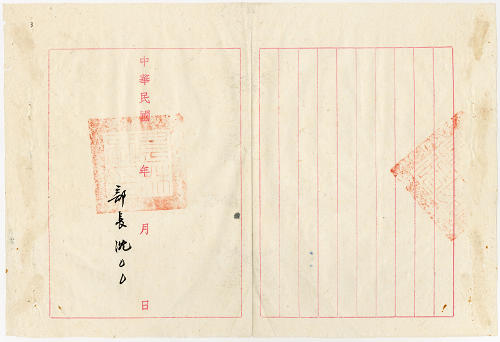 中華民國 年 月 日
部長沈〇〇
3